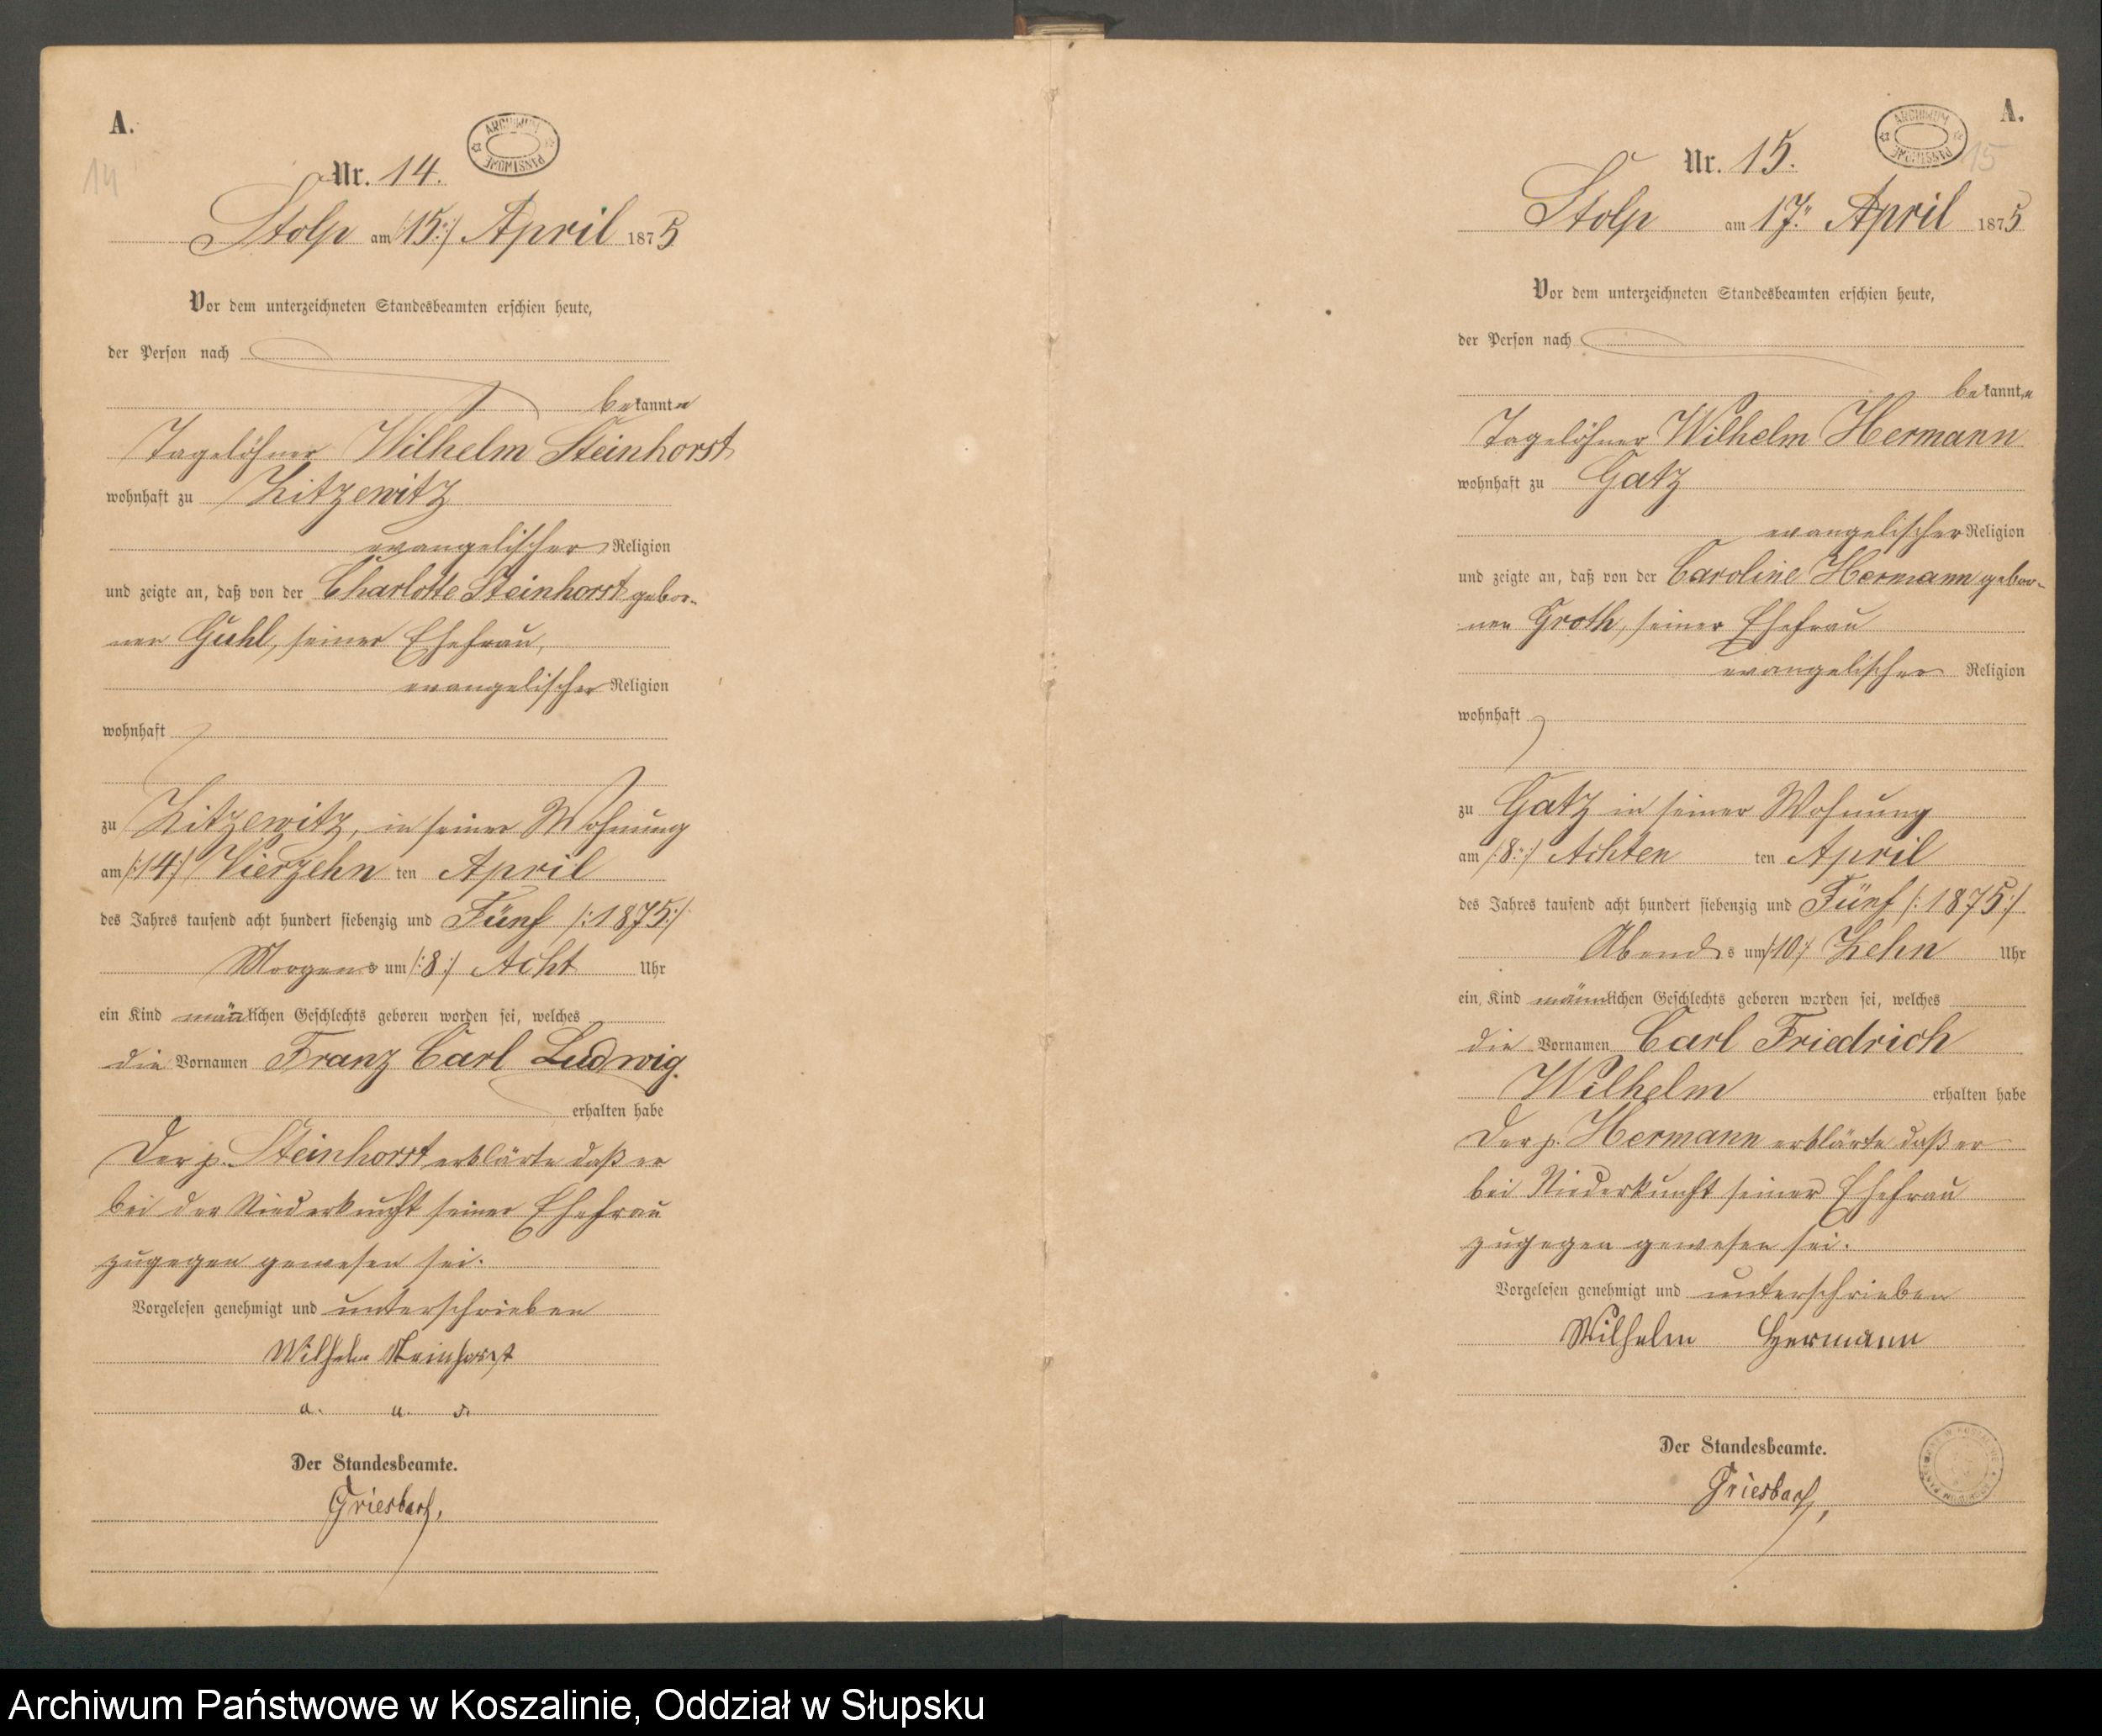 A.
14
ARCHIWUM PAŃSTWOWE
Nr. 14.
Stolp am /:15:/ April 1875
Vor dem unterzeichneten Standesbeamten erschien heute,
der Person nach
bekannte
Tagelöhner Wilhelm Steinhorst
wohnhaft zu Zitzewitz
evangelischer Religion
und zeigte an, daß von der Charlotte Steinhorst gebor-
nen Guhl, seiner Ehefrau,
evangelischer Religion
wohnhaft
zu Zitzewitz, in seiner Wohnung
am /:14:/ Vierzehn ten April
des Jahres tausend acht hundert siebenzig und Fünf /:1875:/
Morgens um /:8:/ Acht Uhr
ein Kind männlichen Geschlechts geboren worden sei, welches
die Vornamen Franz Carl Ludwig
erhalten habe
Der p. Steinhorst erklärte daß er
bei der Niederkunft seiner Ehefrau
zugegen gewesen sei.
Vorgelesen genehmigt und unterschrieben
Wilhelm Steinhorst
a. u. s.
Der Standesbeamte.
Griesbach,
A.
15
ARCHIWUM PAŃSTWOWE
Nr. 15.
Stolp am 17. April 1875
Vor dem unterzeichneten Standesbeamten erschien heute,
der Person nach
bekannte
Tagelöhner Wilhelm Hermann
wohnhaft zu Gatz
evangelischer Religion
und zeigte an, daß von der Caroline Hermann gebor-
nen Groth, seiner Ehefrau
evangelischer Religion
wohnhaft
zu Gatz in seiner Wohnung
am /:8:/ Achten ten April
des Jahres tausend acht hundert siebenzig und Fünf /:1875:/
Abends um /:10:/ Zehn Uhr
ein Kind männlichen Geschlechts geboren worden sei, welches
die Vornamen Carl Friedrich
Wilhelm erhalten habe
Der p. Hermann erklärte daß er
bei Niederkunft seiner Ehefrau
zugegen gewesen sei.
Vorgelesen genehmigt und unterschrieben
Wilhelm Hermann
Der Standesbeamte.
Griesbach,
Archiwum Państwowe w Koszalinie, Oddział w Słupsku